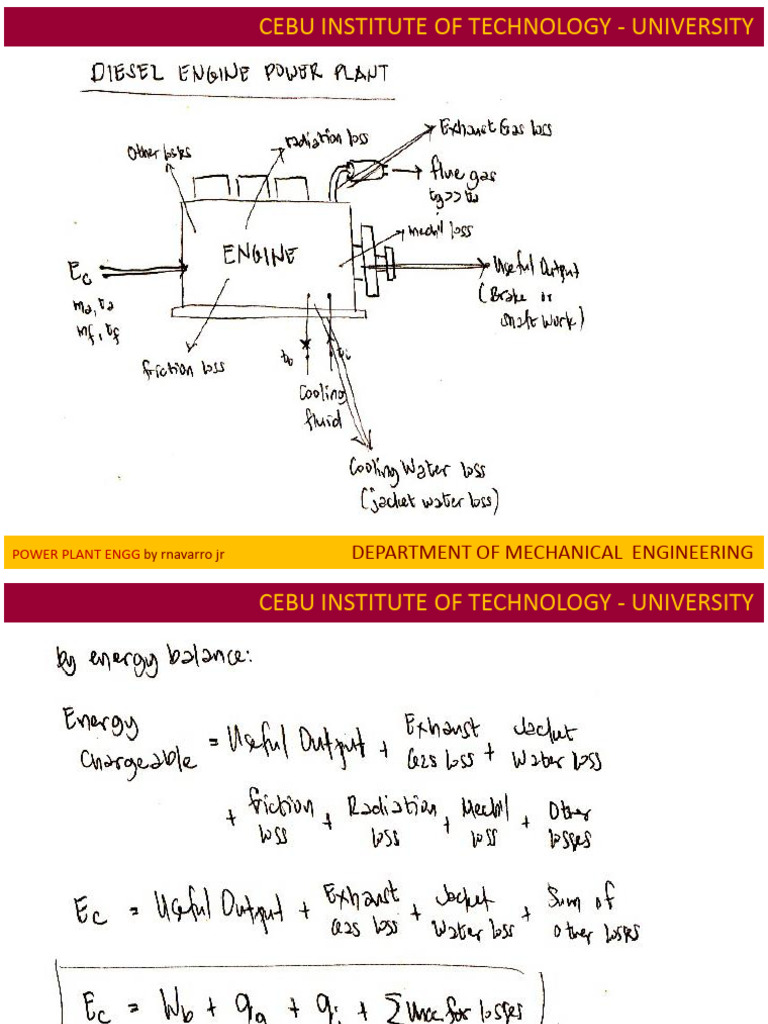 CEBU INSTITUTE OF TECHNOLOGY - UNIVERSITY
DIESEL ENGINE POWER PLANT
Other losses
radiation loss
Exhaust Gas loss
flue gas
mech'l loss
ENGINE
Ec
ma, ta
mf, tf
Useful Output
(Brake or
shaft work)
friction loss
to
ti
Cooling
fluid
Cooling Water loss
(jacket water loss)
POWER PLANT ENGG by rnavarro jr
DEPARTMENT OF MECHANICAL ENGINEERING
CEBU INSTITUTE OF TECHNOLOGY - UNIVERSITY
by energy balance:
Energy Chargeable = Useful Output + Exhaust Gas loss + Jacket Water loss
+ friction loss + Radiation loss + Mech'l loss + Other losses
Ec = Useful Output + Exhaust Gas loss + Jacket Water loss + Sum of other losses
Ec = Wb + qg + qj + Σ Unacc for losses